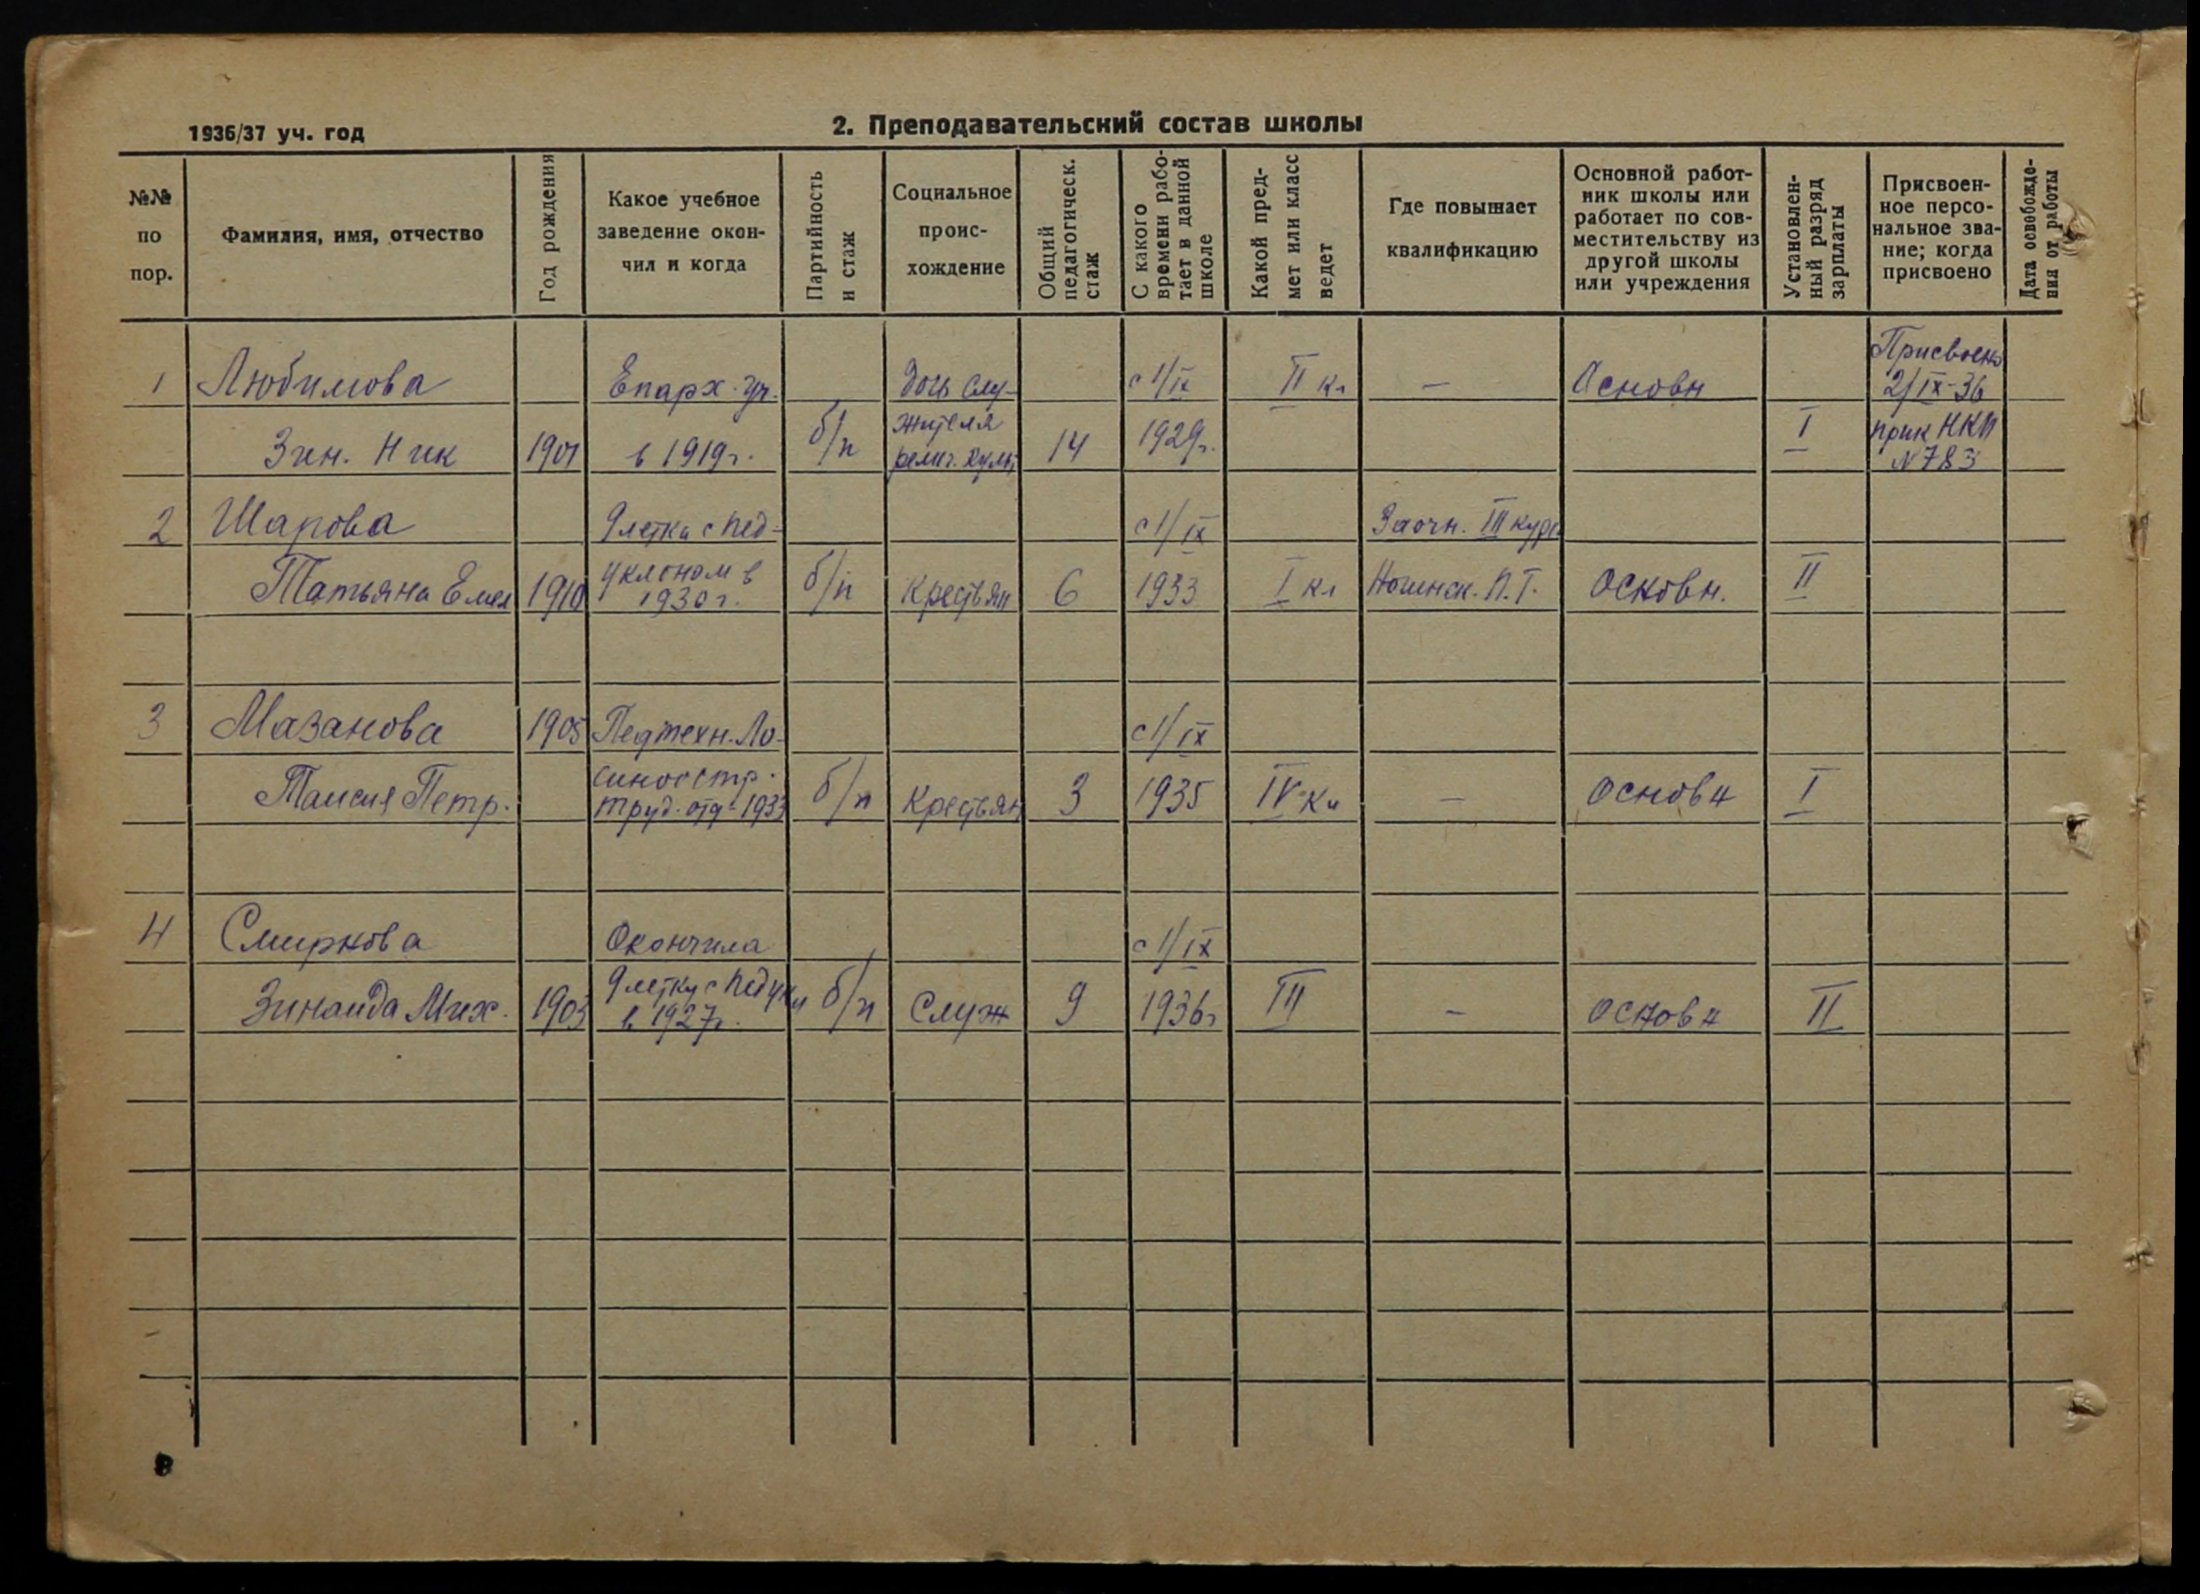 1936/37 уч. год
2. Преподавательский состав школы
№№ по пор.
Фамилия, имя, отчество
Год рождения
Какое учебное заведение окончил и когда
Партийность и стаж
Социальное происхождение
Общий педагогическ. стаж
С какого времени работает в данной школе
Какой предмет или класс ведет
Где повышает квалификацию
Основной работник школы или работает по совместительству из другой школы или учреждения
Установленный разряд зарплаты
Присвоенное персональное звание; когда присвоено
Дата освобождения от работы
Присвоено
1 Любимова Епарх. уч. дочь слу- с 1/IX II кл — Основн 2/IX-36
Зин. Ник 1901 в 1919г. б/п жителя 14 1929г. I прик НКП
религ. культ N 783
2 Шарова 9летка с пед- с 1/IX Заочн. III курс
Татьяна Емел 1910 уклоном в б/п Крестьян 6 1933 I кл Ногинск. П.Т. основн. II
1930г.
3 Мазанова 1905 Педтехн. Ло- с 1/IX
Таисия Петр. синоостр. б/п Крестьян 3 1935 IV кл — основн I
труд. отд-1933
4 Смирнова Окончила с 1/IX
Зинаида Мих. 1903 9летку с педукл б/п Служ 9 1936г III — основн II
в 1927г.
8